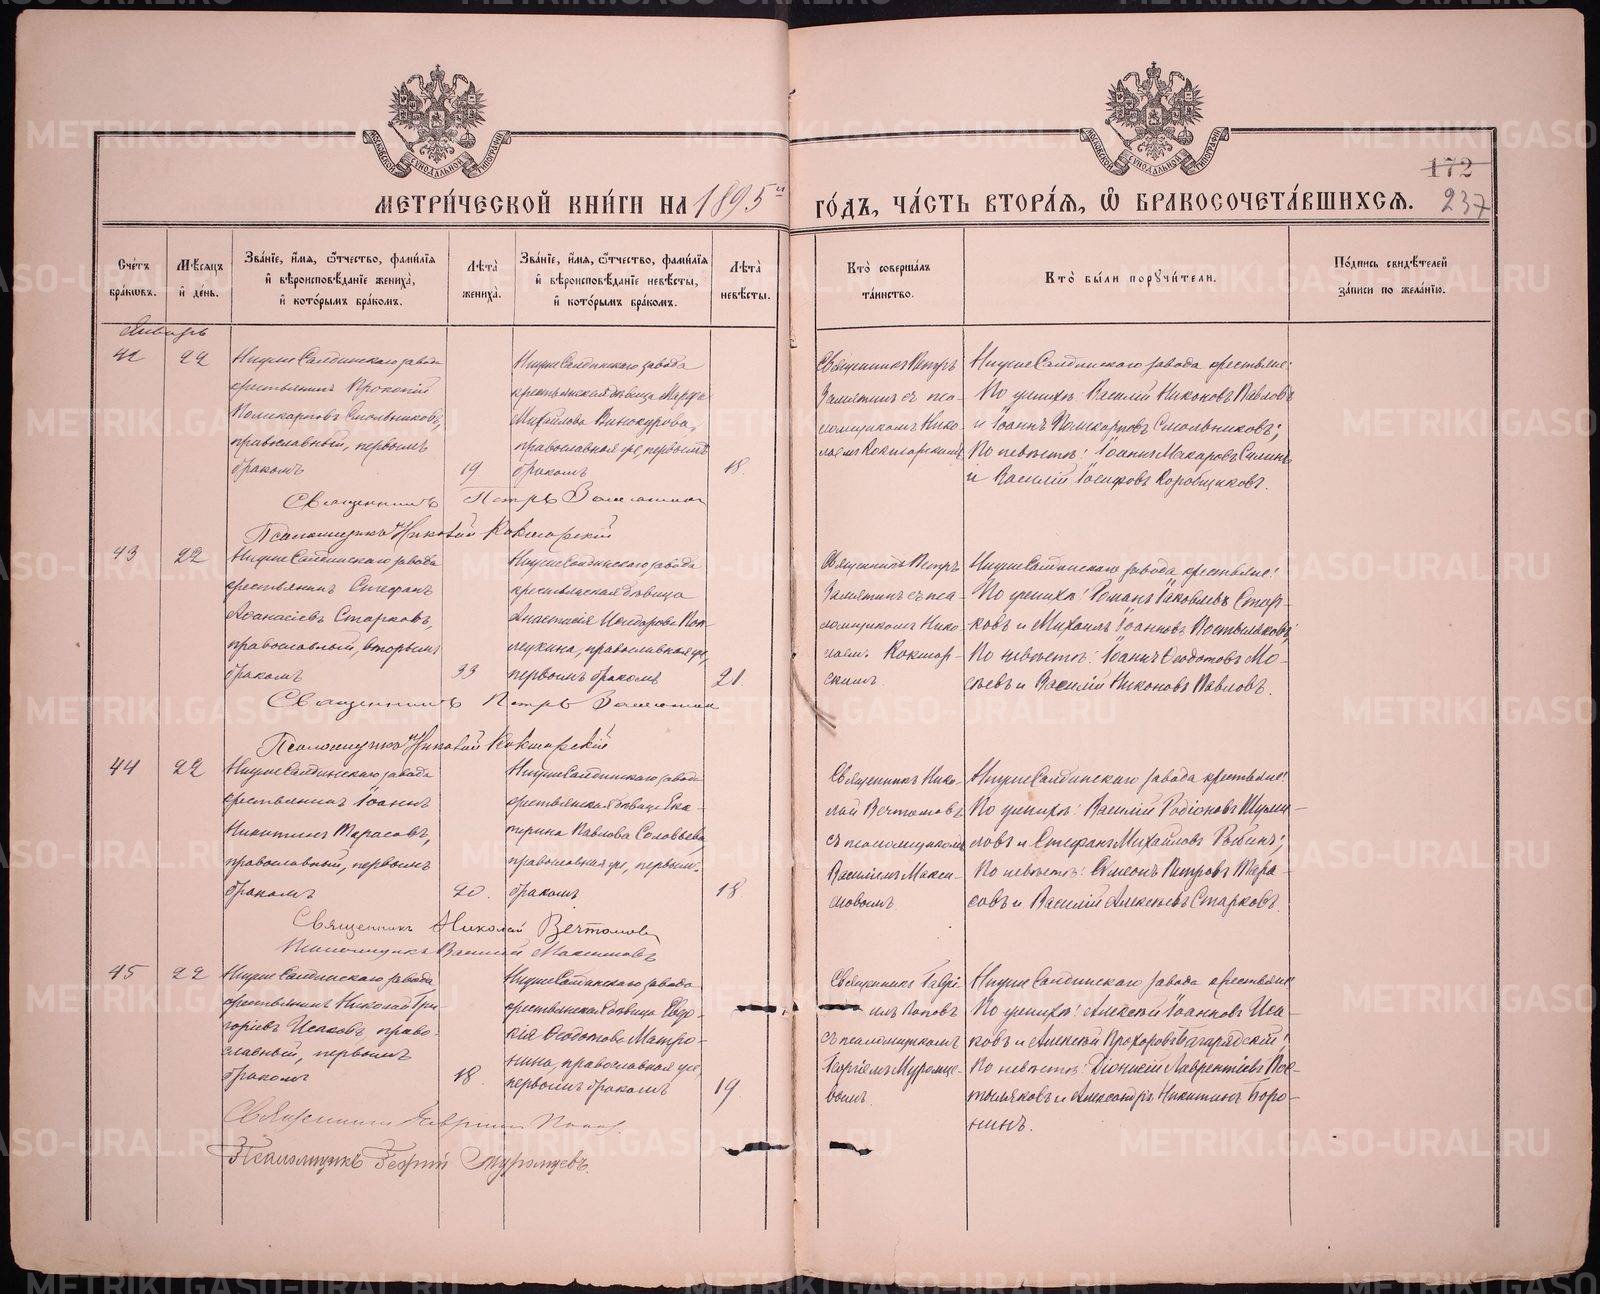 МОСКОВСКОЙ СУНОДАЛЬНОЙ ТИПОГРАФІИ
МОСКОВСКОЙ СУНОДАЛЬНОЙ ТИПОГРАФІИ
172
МЕТРИ́ЧЕСКОЙ КНИ́ГИ НА 1895й ГО́ДЪ, ЧА́СТЬ ВТОРА́Ѧ, Ѿ БРАКОСОЧЕТА́ВШИХСѦ. 237
Сче́тъ бра́кѡвъ.
Мѣ́сѧцъ и҆ де́нь.
Зва́нїе, и҆́мѧ, ѻ҆́тчество, фами́лїѧ и҆ вѣроисповѣ́данїе жениха̀, и҆ кото́рымъ бра́комъ.
Лѣ́та жениха̀.
Зва́нїе, и҆́мѧ, ѻ҆́тчество, фами́лїѧ и҆ вѣроисповѣ́данїе невѣ́сты, и҆ кото́рымъ бра́комъ.
Лѣ́та невѣ́сты.
Кто̀ соверша́лъ та́инство.
Кто̀ бы́ли порꙋчи́тели.
По́дпись свидѣ́телей за́писи по жела́нїю.
Январь
42
22
Нижне Салдинскаго завода
крестьянинъ Прокопій
Поликарповъ Смольниковъ,
православный, первымъ
бракомъ
19
Нижне Салдинскаго завода
крестьянская дѣвица Марфа
Михайлова Винокурова,
православная же, первымъ
бракомъ
18.
Священникъ Петръ
Замятинъ съ пса-
ломщикомъ Нико-
лаемъ Кокшарскимъ
Нижне Салдинскаго завода крестьяне:
По женихѣ: Василій Никоновъ Павловъ
и Іоаннъ Поликарповъ Смольниковъ;
По невѣстѣ: Іоаннъ Макаровъ
и Василій Іосифовъ Коробщиковъ.
Священникъ Петръ Замятинъ
Псаломщикъ Николай Кокшарскій
43
22
Нижне Салдинскаго завода
крестьянинъ Стефанъ
Аѳанасіевъ Старковъ,
православный, вторымъ
бракомъ
33
Нижне Салдинскаго завода
крестьянская дѣвица
Анастасія
православная же,
первымъ бракомъ
21.
Священникъ Петръ
Замятинъ съ пса-
ломщикомъ Нико-
лаемъ Кокшар-
скимъ.
Нижне Салдинскаго завода крестьяне:
По женихѣ: Романъ Іаковлевъ Стар-
ковъ и Михаилъ Іоанновъ Постыляковъ;
По невѣстѣ: Іоаннъ Ѳеодотовъ Мо-
сѣевъ и Василій Никоновъ Павловъ.
Священникъ Петръ Замятинъ
Псаломщикъ Николай Кокшарскій
44
22
Нижне Салдинскаго завода
крестьянинъ Іоаннъ
Никитинъ Тарасовъ,
православный, первымъ
бракомъ
20.
Нижне Салдинскаго завода
крестьянская дѣвица Ека-
терина Павлова Соловьева,
православная же, первымъ
бракомъ
18
Священникъ Нико-
лай Вечтомовъ
съ псаломщикомъ
Василіемъ Макси-
мовымъ.
Нижне Салдинскаго завода крестьяне:
По женихѣ: Василій Родіоновъ
и Стефанъ Михайловъ
По невѣстѣ: Симеонъ Петровъ Тара-
совъ и Василій Алексѣевъ Старковъ.
Священникъ Николай Вечтомовъ
Псаломщикъ Василій Максимовъ
45
22
Нижне Салдинскаго завода
крестьянинъ Николай Гри-
горіевъ Исаковъ, право-
славный, первымъ
бракомъ
18.
Нижне Салдинскаго завода
крестьянская дѣвица Евдо-
кія Ѳеодотова Матро-
нина, православная же,
первымъ бракомъ
19.
Священникъ Гаврі-
илъ Поповъ
съ псаломщикомъ
Георгіемъ Муромце-
вымъ.
Нижне Салдинскаго завода крестьяне
По женихѣ: Алексѣй Іоанновъ Иса-
ковъ и Алексѣй Прохоровъ Багарядскій;
По невѣстѣ: Діонисій Лаврентіевъ Пос-
тыляковъ и Александръ Никитинъ Боро-
нинъ.
Священникъ Гавріилъ Поповъ
Псаломщикъ Георгій Муромцевъ
METRIKI.GASO-URAL.RU